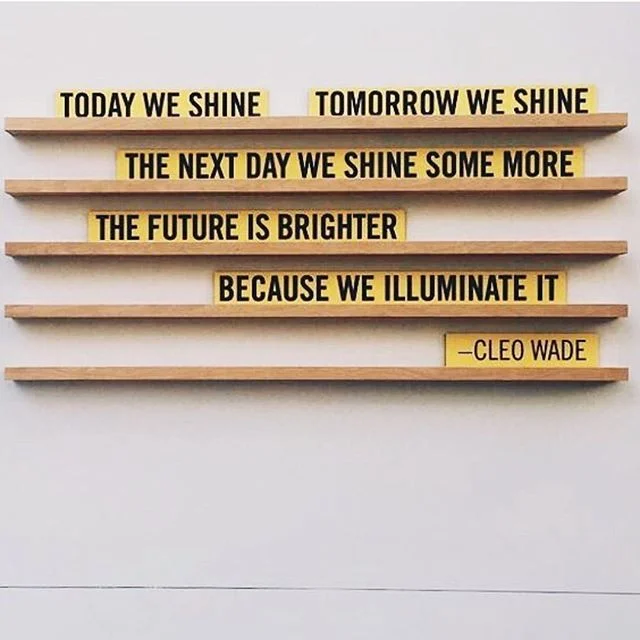 TODAY WE SHINE TOMORROW WE SHINE
THE NEXT DAY WE SHINE SOME MORE
THE FUTURE IS BRIGHTER
BECAUSE WE ILLUMINATE IT
–CLEO WADE